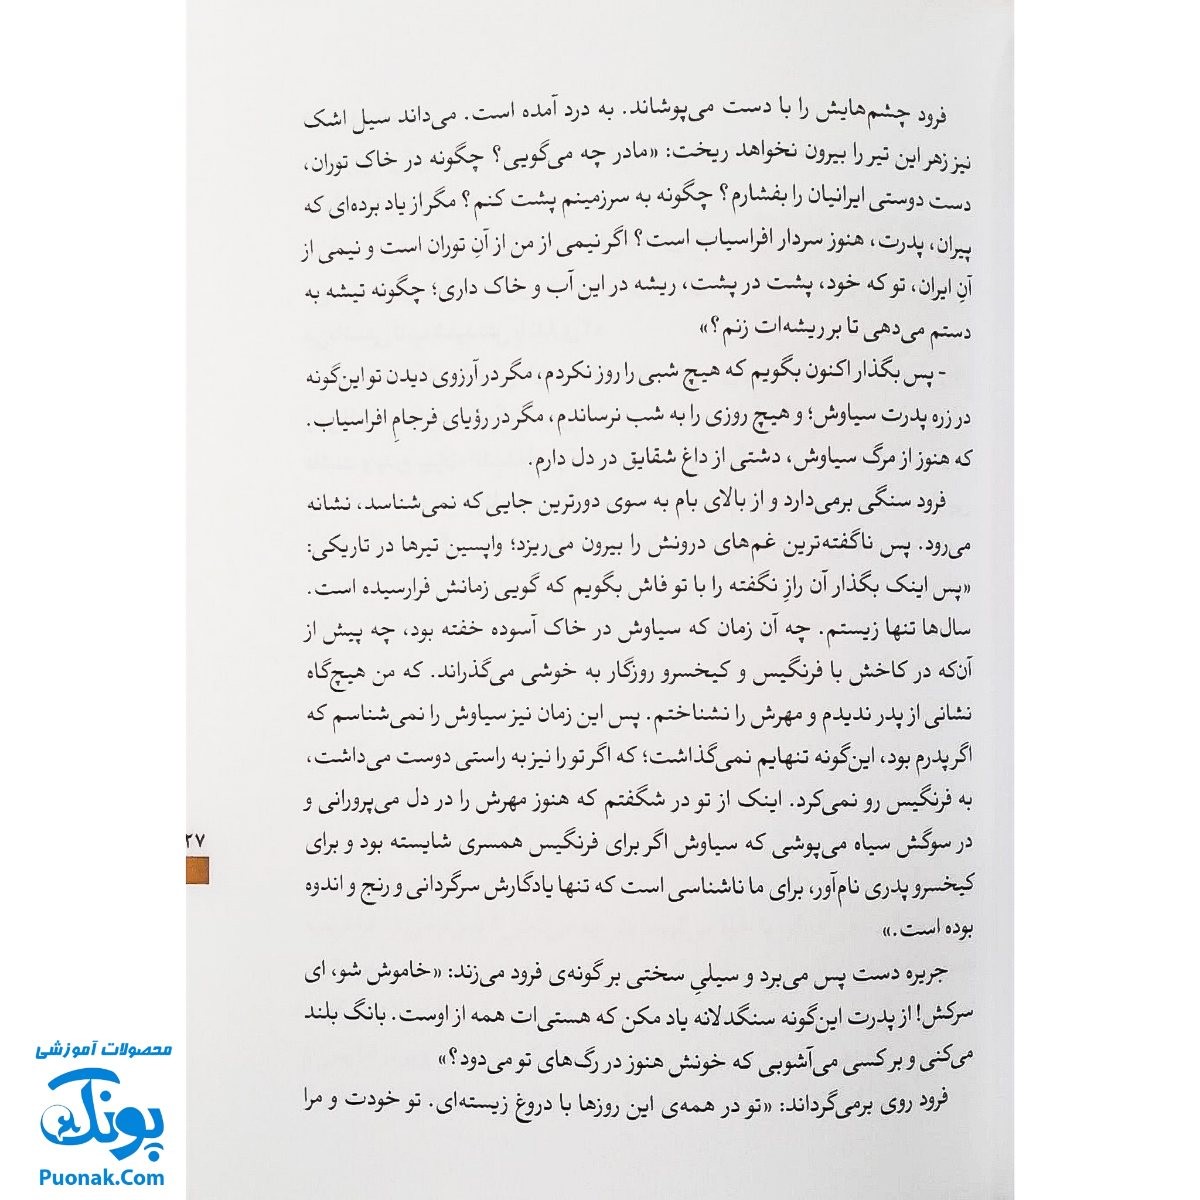 فرود چشم‌هایش را با دست می‌پوشاند. به درد آمده است. می‌داند سیل اشک
نیز زهر این تیر را بیرون نخواهد ریخت: «مادر چه می‌گویی؟ چگونه در خاک توران،
دست دوستی ایرانیان را بفشارم؟ چگونه به سرزمینم پشت کنم؟ مگر از یاد برده‌ای که
پیران، پدرت، هنوز سردار افراسیاب است؟ اگر نیمی از من از آنِ توران است و نیمی از
آنِ ایران، تو که خود، پشت در پشت، ریشه در این آب و خاک داری؛ چگونه تیشه به
دستم می‌دهی تا بر ریشه‌ات زنم؟»
- پس بگذار اکنون بگویم که هیچ شبی را روز نکردم، مگر در آرزوی دیدن تو این‌گونه
در زره پدرت سیاوش؛ و هیچ روزی را به شب نرساندم، مگر در رؤیای فرجامِ افراسیاب.
که هنوز از مرگ سیاوش، دشتی از داغ شقایق در دل دارم.
فرود سنگی برمی‌دارد و از بالای بام به سوی دورترین جایی که نمی‌شناسد، نشانه
می‌رود. پس ناگفته‌ترین غم‌های درونش را بیرون می‌ریزد؛ واپسین تیرها در تاریکی:
«پس اینک بگذار آن رازِ نگفته را با تو فاش بگویم که گویی زمانش فرارسیده است.
سال‌ها تنها زیستم. چه آن زمان که سیاوش در خاک آسوده خفته بود، چه پیش از
آن‌که در کاخش با فرنگیس و کیخسرو روزگار به خوشی می‌گذراند. که من هیچ‌گاه
نشانی از پدر ندیدم و مهرش را نشناختم. پس این زمان نیز سیاوش را نمی‌شناسم که
اگر پدرم بود، این‌گونه تنهایم نمی‌گذاشت؛ که اگر تو را نیز به راستی دوست می‌داشت،
به فرنگیس رو نمی‌کرد. اینک از تو در شگفتم که هنوز مهرش را در دل می‌پرورانی و
در سوگش سیاه می‌پوشی که سیاوش اگر برای فرنگیس همسری شایسته بود و برای
کیخسرو پدری نام‌آور، برای ما ناشناسی است که تنها یادگارش سرگردانی و رنج و اندوه
بوده است.»
جریره دست پس می‌برد و سیلیِ سختی بر گونه‌ی فرود می‌زند: «خاموش شو، ای
سرکش! از پدرت این‌گونه سنگدلانه یاد مکن که هستی‌ات همه از اوست. بانگ بلند
می‌کنی و بر کسی می‌آشوبی که خونش هنوز در رگ‌های تو می‌دود؟»
فرود روی برمی‌گرداند: «تو در همه‌ی این روزها با دروغ زیسته‌ای. تو خودت و مرا
۲۷
محصولات آموزشی
پونک
Puonak.Com